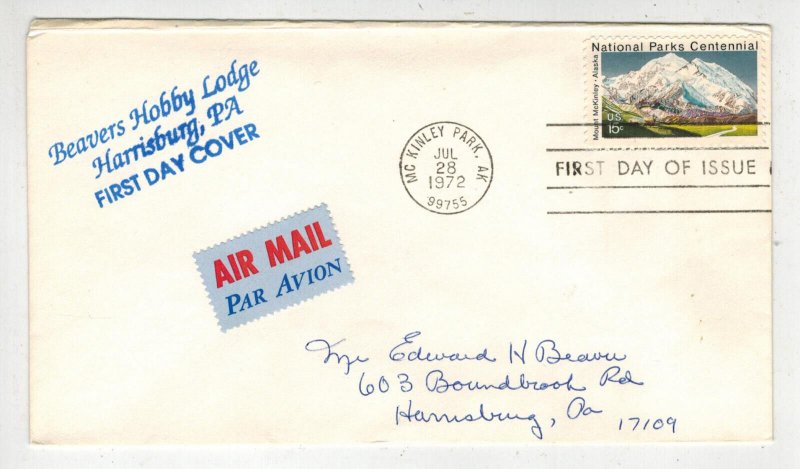 Beavers Hobby Lodge
Harrisburg, PA
FIRST DAY COVER
National Parks Centennial
Mount McKinley · Alaska
US
15c
MC KINLEY PARK, AK
JUL
28
1972
99755
FIRST DAY OF ISSUE
AIR MAIL
PAR AVION
Mr Edward H Beaver
603 Boundbrook Rd
Harrisburg, Pa
17109